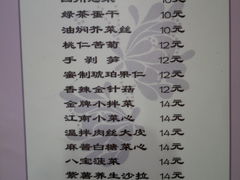 四川泡菜 10元
绿茶蛋干 10元
油焖芥菜丝 10元
桃仁苦菊 12元
手剥笋 12元
蜜制琥珀果仁 12元
香辣金针菇 12元
金牌小拌菜 14元
江南小菜心 14元
温拌肉丝大皮 14元
麻酱白糖菜心 14元
八宝菠菜 14元
紫薯养生沙拉 14元